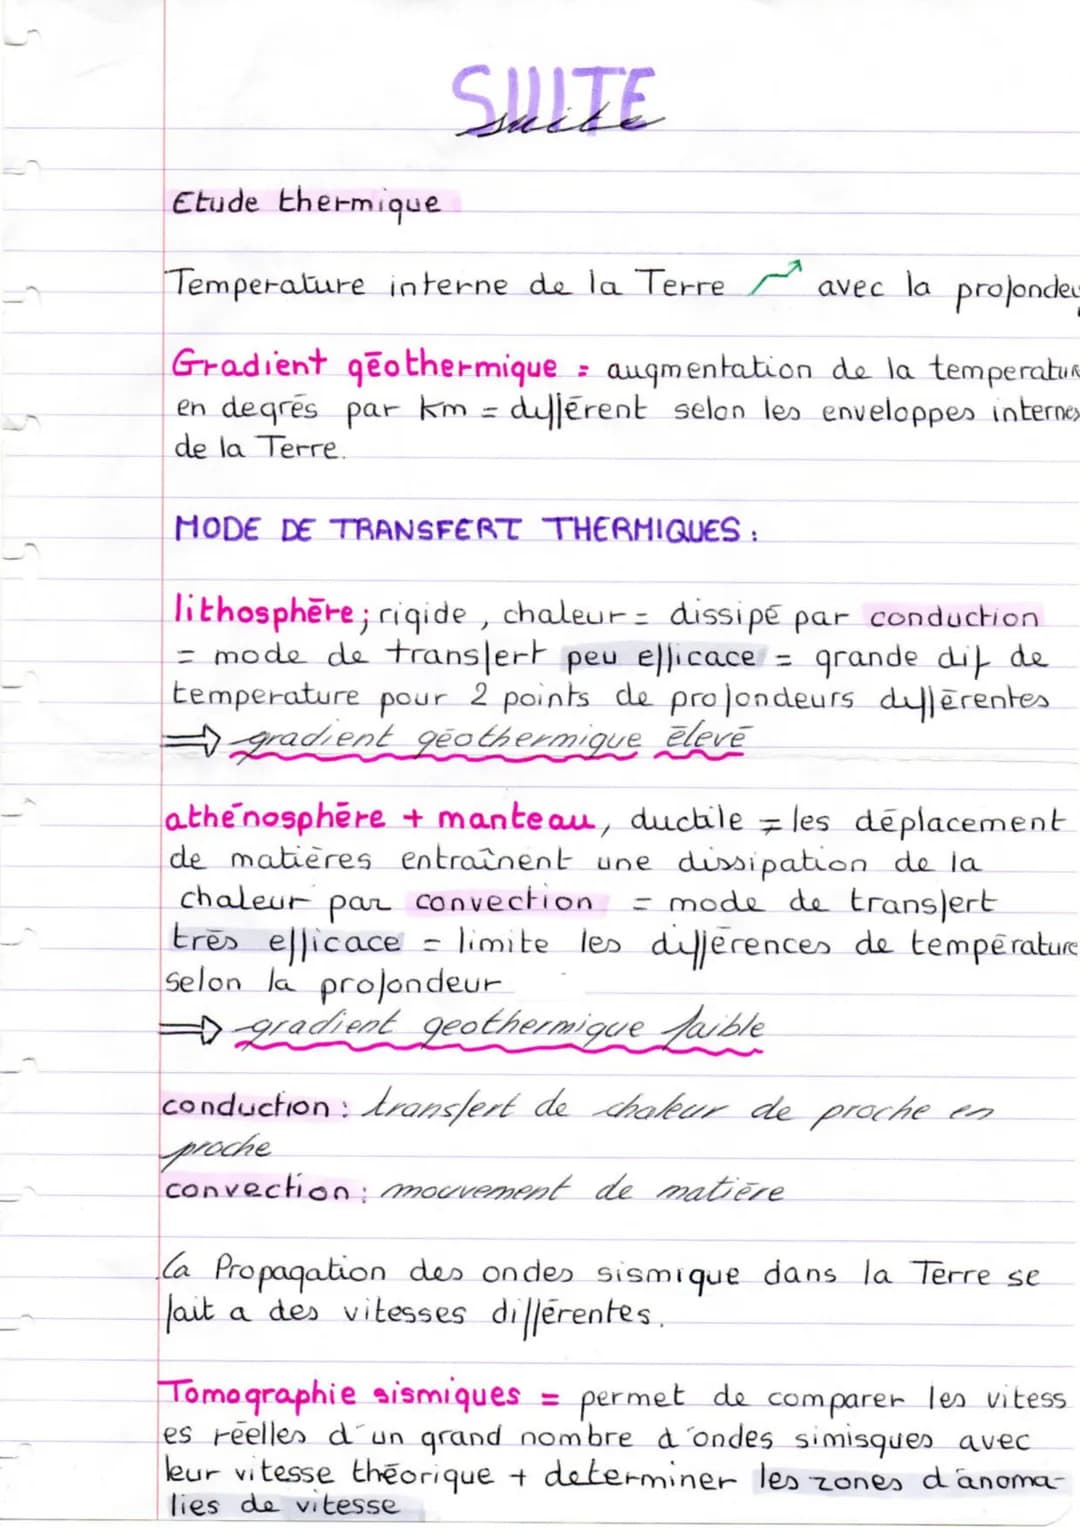 SUITE
suite
Etude thermique
Temperature interne de la Terre ↗ avec la profondeu
Gradient géothermique = augmentation de la temperatur
en degrés par km = différent selon les enveloppes internes
de la Terre.
MODE DE TRANSFERT THERMIQUES :
lithosphère ; rigide, chaleur = dissipé par conduction
= mode de transfert peu efficace = grande dif de
temperature pour 2 points de profondeurs différentes
⇒ gradient géothermique élevé
athénosphère + manteau, ductile = les déplacement
de matières entraînent une dissipation de la
chaleur par convection = mode de transfert
très efficace = limite les différences de température
selon la profondeur
⇒ gradient geothermique faible
conduction : transfert de chaleur de proche en
proche
convection : mouvement de matière
La Propagation des ondes sismique dans la Terre se
fait a des vitesses différentes.
Tomographie sismiques = permet de comparer les vitess
es réelles d'un grand nombre d'ondes simisques avec
leur vitesse théorique + determiner les zones d'anoma-
lies de vitesse